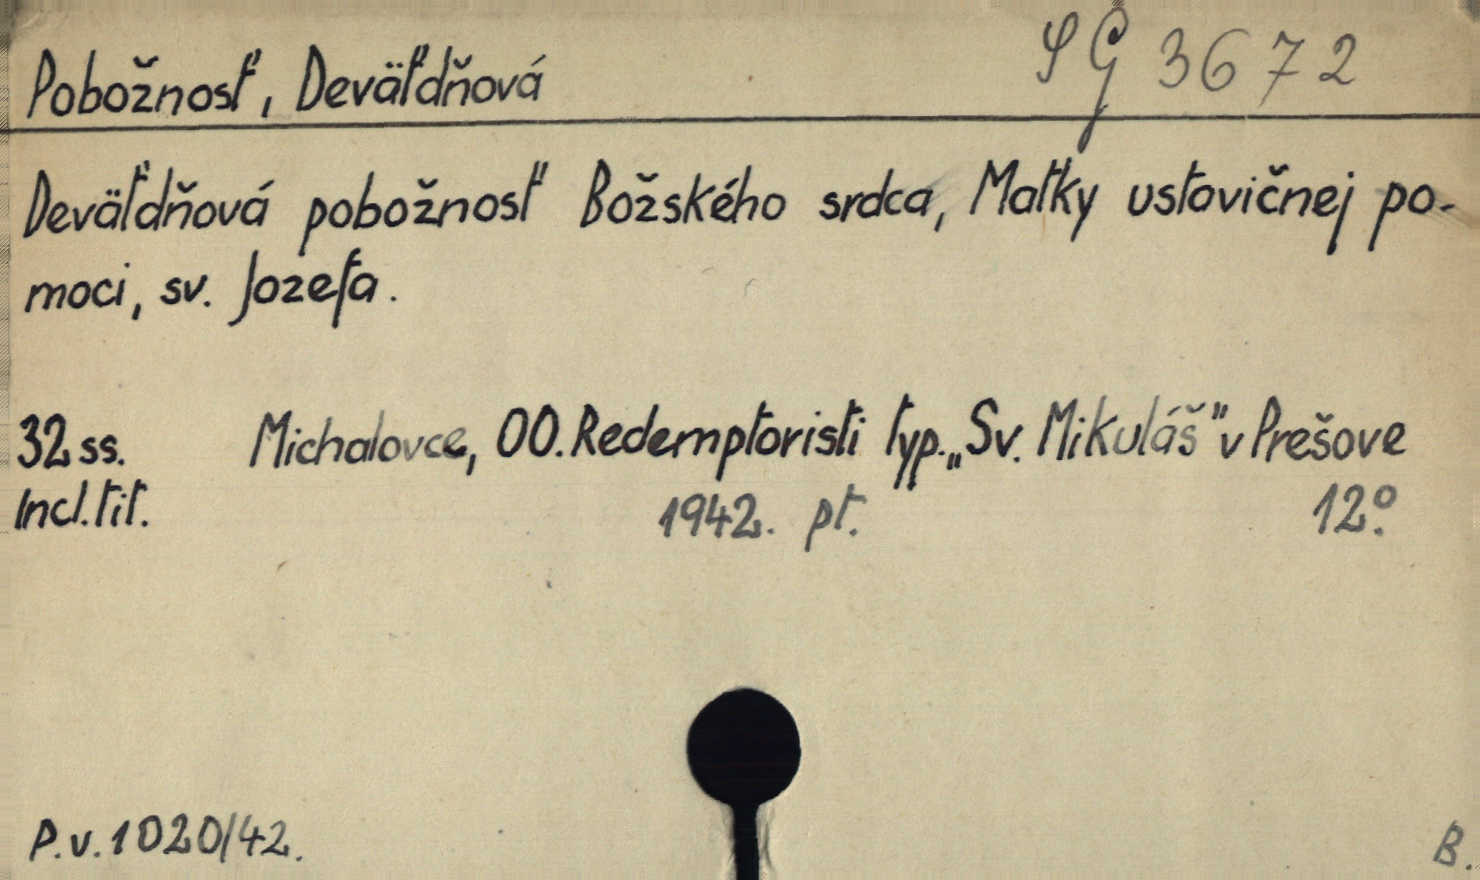 SG 3672
Pobožnosť, Deväťdňová
Deväťdňová pobožnosť Božského srdca, Matky ustavičnej po-
moci, sv. Jozefa.
32 ss. Michalovce, OO. Redemptoristi typ. „Sv. Mikuláš" v Prešove
Incl. tit. 1942. pt. 12°.
P. v. 1020/42.
B.